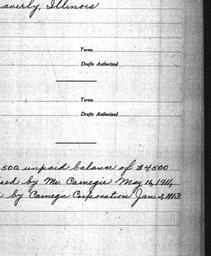 averly, Illinois
Terms
Drafts Authorized
Terms
Drafts Authorized
500, unpaid balance of $4,500
sed by Mr. Carnegie May 16, 1914
by Carnegie Corporation Jan. 2, 1913